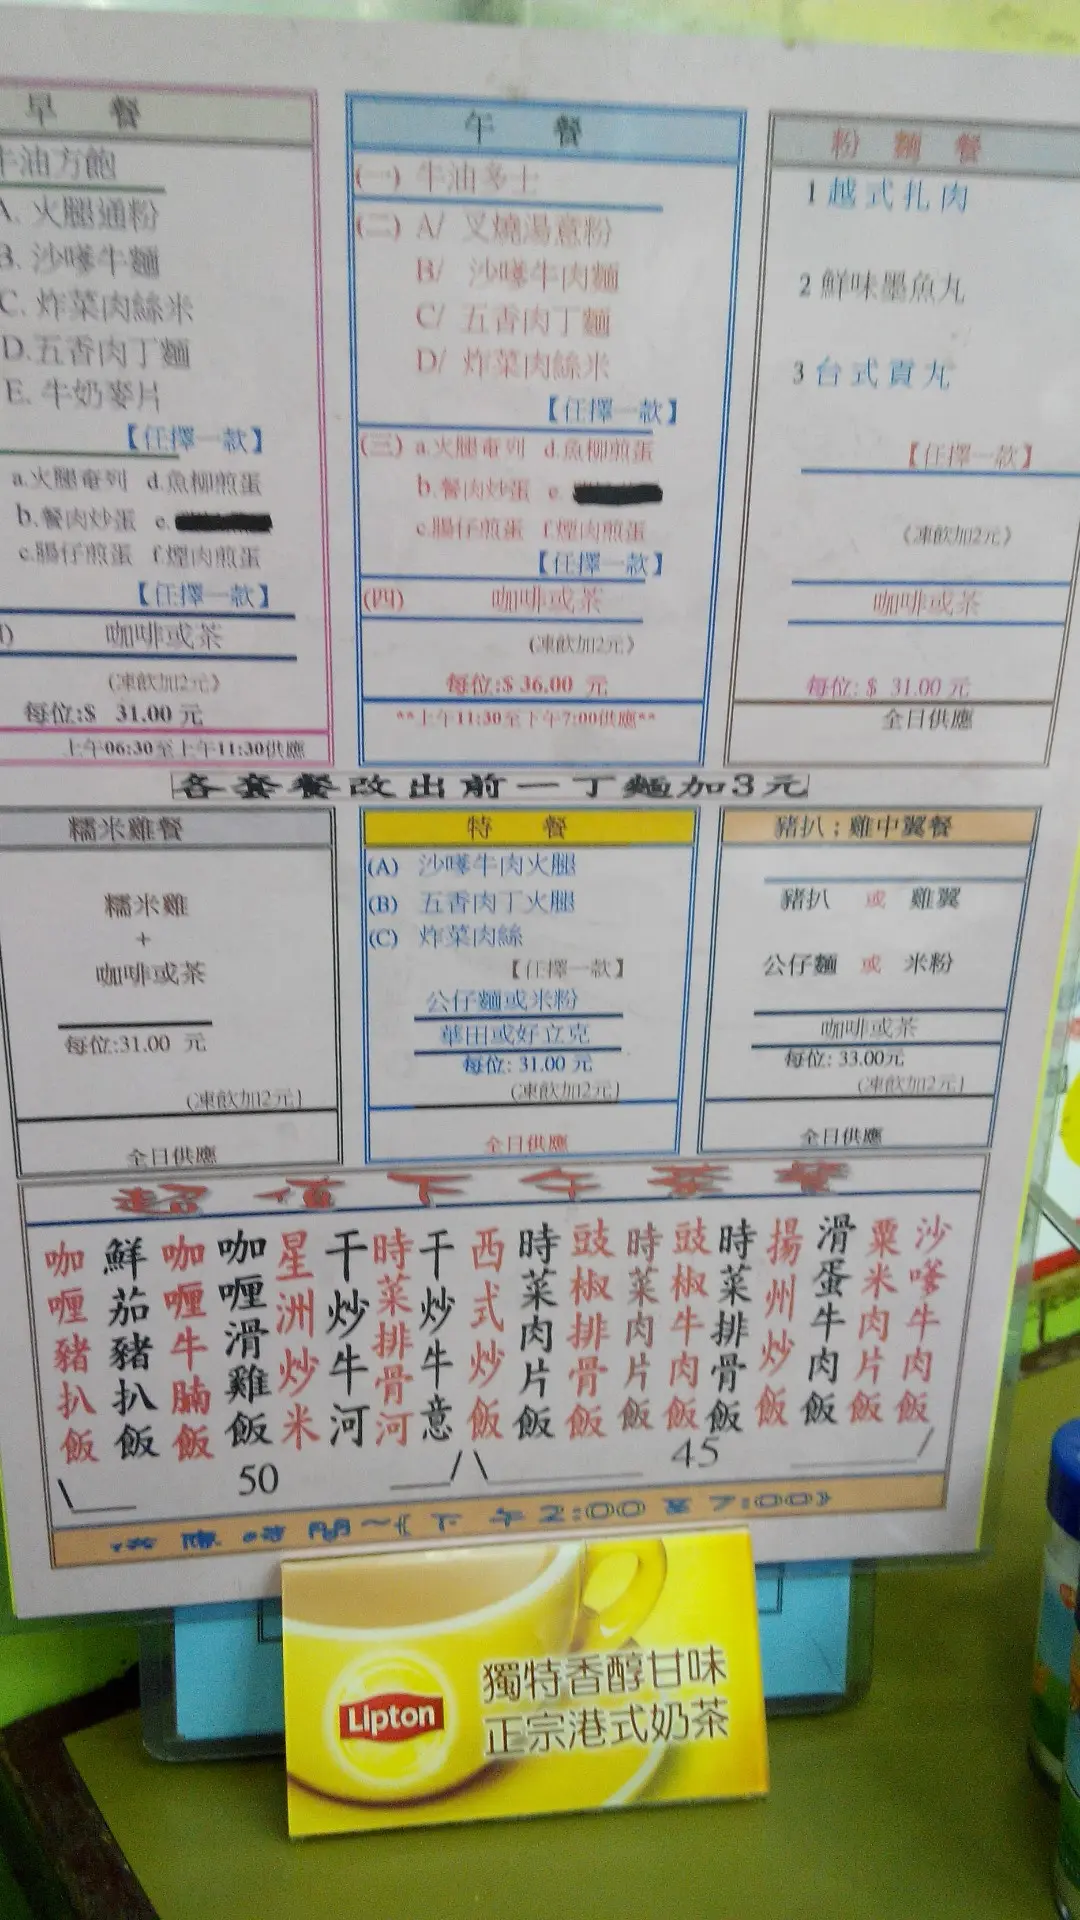 早 餐
牛油方飽
A. 火腿通粉
B. 沙嗲牛麵
C. 炸菜肉絲米
D.五香肉丁麵
E. 牛奶麥片
【任擇一款】
a.火腿奄列 d.魚柳煎蛋
b.餐肉炒蛋 e.
c.腸仔煎蛋 f.煙肉煎蛋
【任擇一款】
咖啡或茶
(凍飲加2元)
每位:$ 31.00 元
上午06:30至上午11:30供應
午 餐
(一) 牛油多士
(二) A/ 叉燒湯意粉
B/ 沙嗲牛肉麵
C/ 五香肉丁麵
D/ 炸菜肉絲米
【任擇一款】
(三) a.火腿奄列 d.魚柳煎蛋
b.餐肉炒蛋 e.
c.腸仔煎蛋 f.煙肉煎蛋
【任擇一款】
(四) 咖啡或茶
(凍飲加2元)
每位:$ 36.00 元
**上午11:30至下午7:00供應**
粉 麵 餐
1 越式扎肉
2 鮮味墨魚丸
3 台式貢丸
【任擇一款】
(凍飲加2元)
咖啡或茶
每位: $ 31.00 元
全日供應
各套餐改出前一丁麵加3元
糯米雞餐
糯米雞
+
咖啡或茶
每位:31.00 元
(凍飲加2元)
全日供應
特 餐
(A) 沙嗲牛肉火腿
(B) 五香肉丁火腿
(C) 炸菜肉絲
【任擇一款】
公仔麵或米粉
華田或好立克
每位: 31.00 元
(凍飲加2元)
全日供應
豬扒;雞中翼餐
豬扒 或 雞翼
公仔麵 或 米粉
咖啡或茶
每位: 33.00元
(凍飲加2元)
全日供應
超值下午茶餐
咖喱豬扒飯
鮮茄豬扒飯
咖喱牛腩飯
咖喱滑雞飯
星洲炒米
干炒牛河
時菜排骨河
干炒牛意
50
西式炒飯
時菜肉片飯
豉椒排骨飯
時菜肉片飯
豉椒牛肉飯
時菜排骨飯
揚州炒飯
滑蛋牛肉飯
粟米肉片飯
沙嗲牛肉飯
45
供應時間~(下午2:00至7:00)
Lipton
獨特香醇甘味
正宗港式奶茶